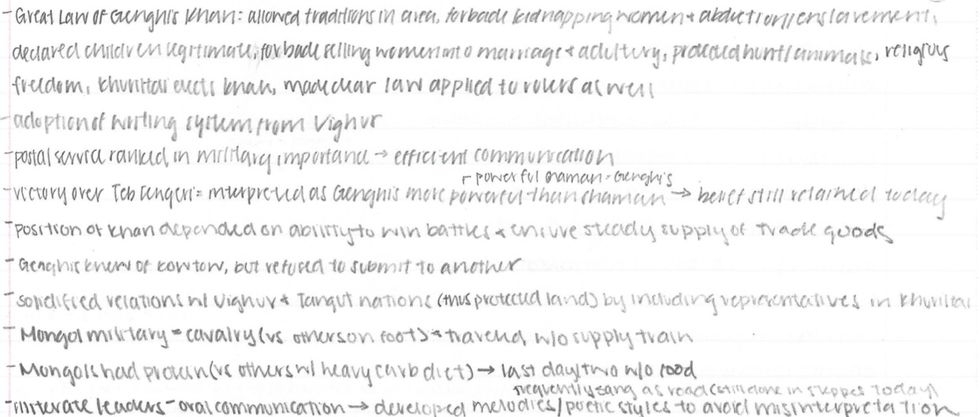 -Great Law of Genghis Khan: allowed traditions in area, forbade kidnapping women + abduction/enslavement,
declared children legitimate, forbade selling women into marriage + adultery, protected hunt/animals, religious
freedom, khuriltai elects khan, made clear law applied to rulers as well
-adoption of writing system from Uighur
-postal service ranked in military importance → efficient communication
powerful shaman - Genghis
-victory over Teb Tengeri = interpreted as Genghis more powerful than shaman → belief still retained today
-position of khan depended on ability to win battles + ensure steady supply of trade goods
-Genghis knew of kowtow, but refused to submit to another
-solidified relations w/ Uighur + Tangut nations (thus protected land) by including representatives in khuriltai
-Mongol military = cavalry (vs others on foot) + traveled w/o supply train
-Mongols had protein (vs others w/ heavy carb diet) → last day/two w/o food
frequently sang as read (still done in steppes today)
-illiterate leaders - oral communication → developed melodies/poetic styles to avoid misinterpretation